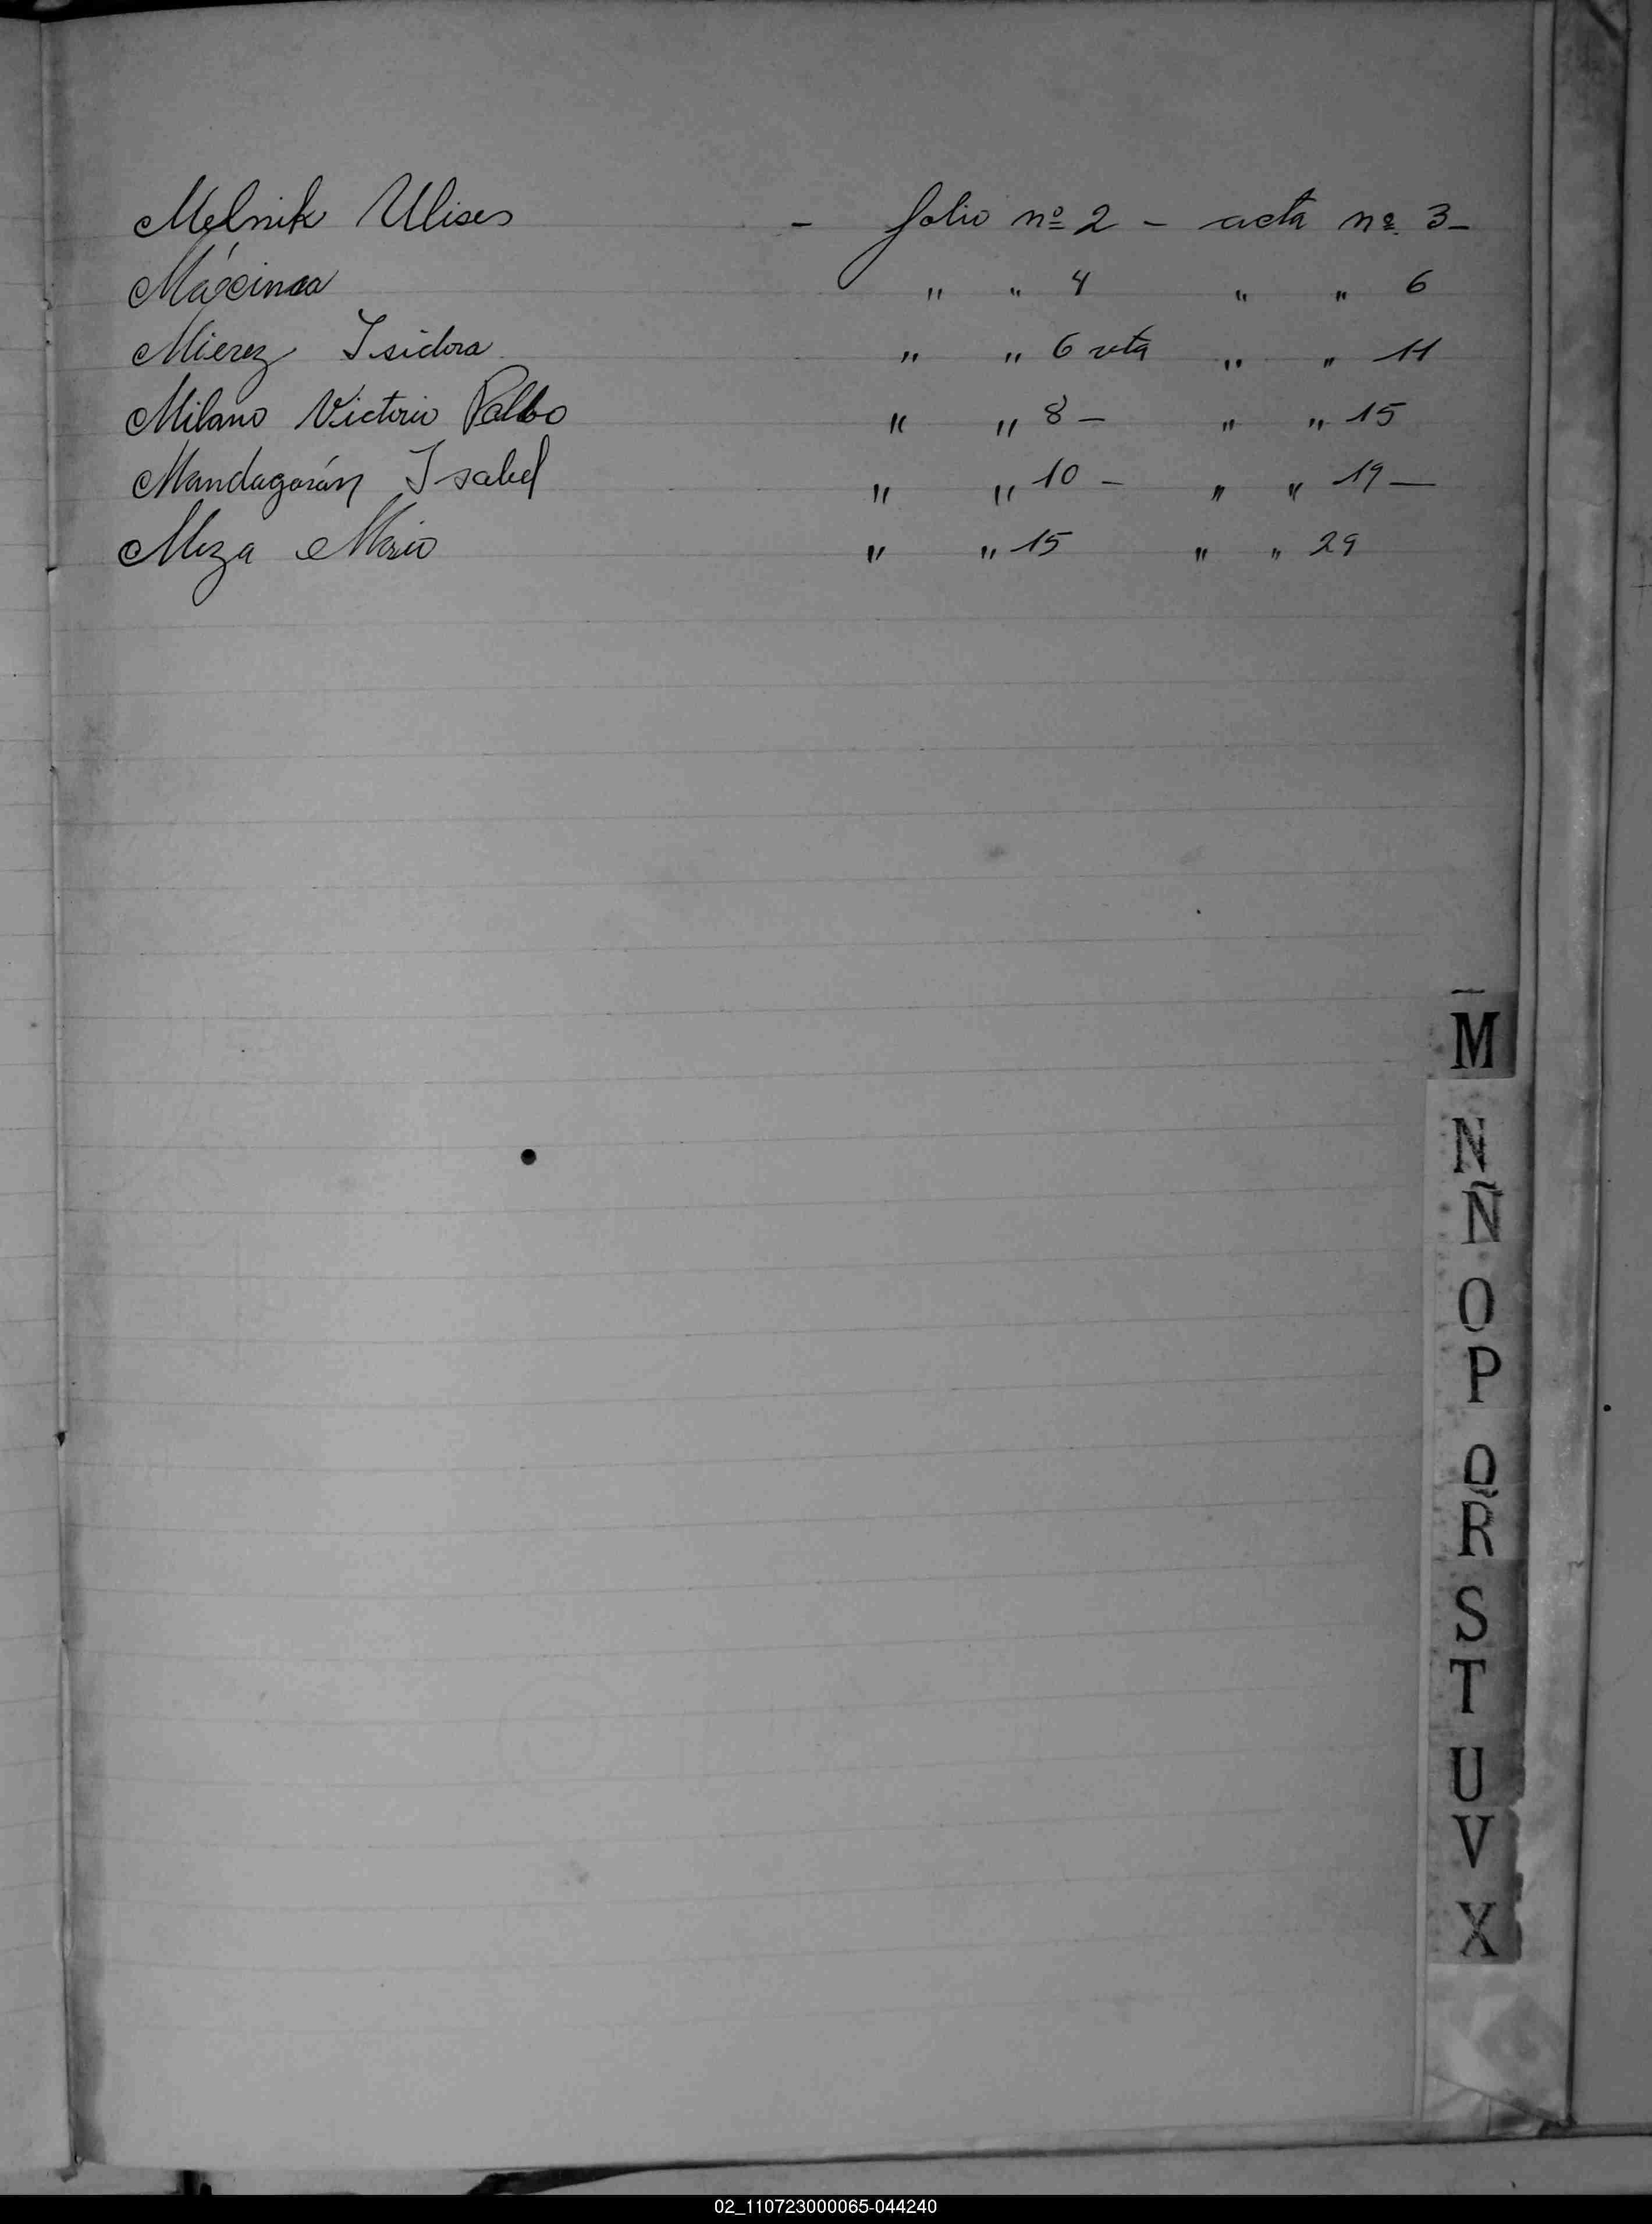 Melnik Ulises - folio nº 2 - acta nº 3-
Máxima " " 4 " " 6
Mierez Isidora " " 6 vta " " 11
Milano Victorio Pablo " " 8 - " " 15
Mandagarán Isabel " " 10 - " " 19 -
Meza Mario " " 15 " " 29
M
N
Ñ
O
P
Q
R
S
T
U
V
X
02_110723000065-044240